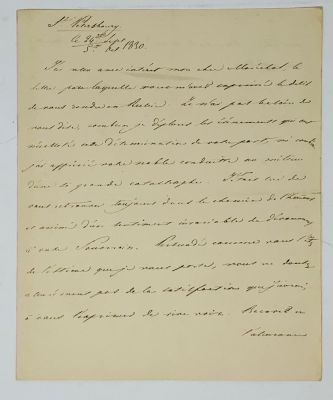 St Petersbourg
Le 24 Sept 1830.
5 Oct
J'ai reçu avec intérêt mon cher Maréchal, la
lettre par laquelle vous m'avez exprimé le désir
de vous rendre en Russie. Je n'ai pas besoin de
vous dire, combien je déplore les évènements qui ont
nécessité cette détermination de votre part, ni combien
j'ai apprécié votre noble conduite au milieu
d'une si grande catastrophe. Il fait
vous retrouver toujours dans le chemin de l'honneur
et animé d'un sentiment invariable de dévouement
à votre Souverain. Persuadé comme vous l'êtes
de l'estime que je vous porte, vous ne doutez
sûrement pas de la satisfaction que j'aurai
à vous l'exprimer de vive voix. Recevez en